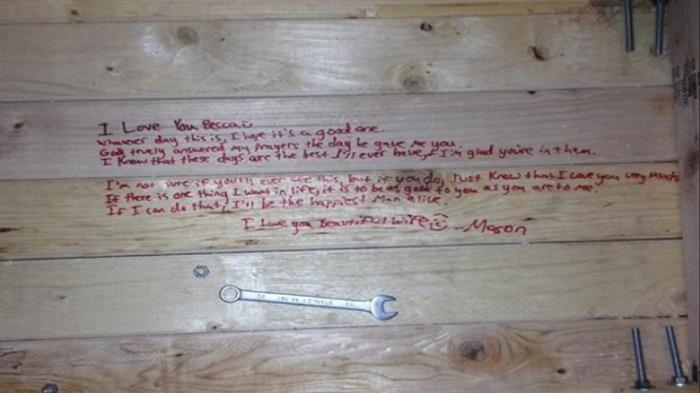 I Love You Becca
Whatever day this is, I hope it's a good one.
God truely answered my Prayers the day he gave me you.
I know that these days are the best I'll ever have, & I'm glad you're in them.
I'm not sure if you'll ever see this, but if you do, Just Know that I Love you very much
If there is one thing I want in life, it is to be as good to you as you are to me.
If I can do that, I'll be the happiest Man alive.
I Love you Beautiful Wife
-Mason